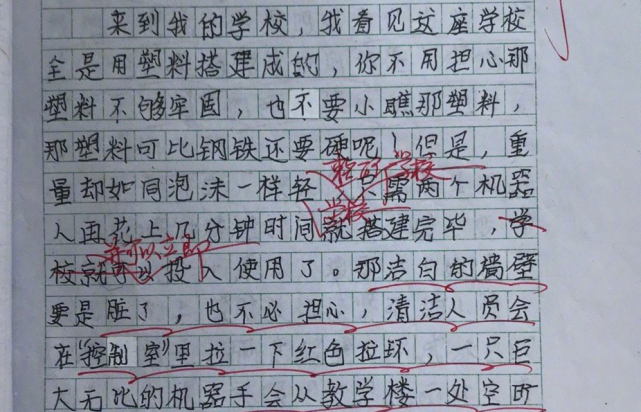 来到我的学校，我看见这座学校
全是用塑料搭建成的，你不用担心那
塑料不够牢固，也不要小瞧那塑料，
那塑料可比钢铁还要硬呢！但是，重
量却如同泡沫一样轻，只需两个机器
学校
人再花上几分钟时间就搭建完毕，学
并可以立即
校就可以投入使用了。那洁白的墙壁
要是脏了，也不必担心，清洁人员会
在“控制室”里拉一下红色拉环，一只巨
大无比的机器手会从教学楼一处空旷